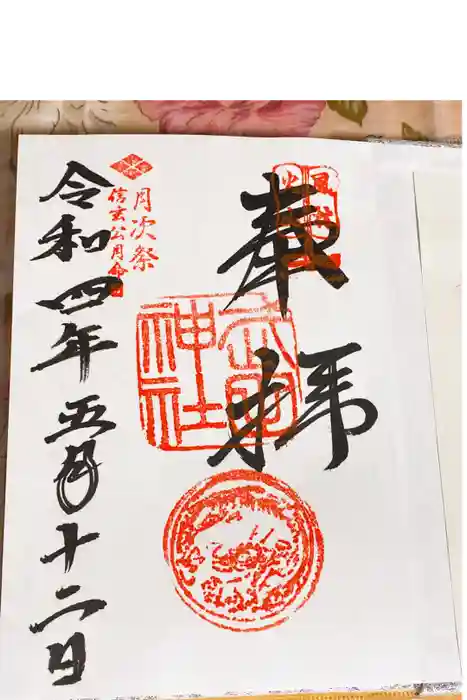 奉拝
月次祭
信玄公月命日
武田神社
令和四年五月十二日